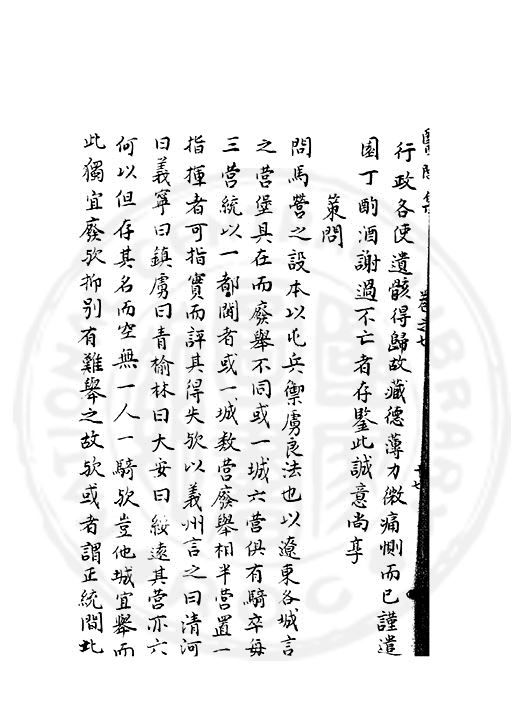 醫閭集 卷之七 十七
行政各使遺骸得歸故藏德薄力微痛惻而已謹遣
園丁酌酒謝過不亡者存鑒此誠意尚享
策問
問馬營之設本以屯兵禦虜良法也以遼東各城言
之營堡具在而廢舉不同或一城六營俱有騎卒每
三營統以一都閫者或一城數營廢舉相半營置一
指揮者可指實而評其得失歟以義州言之曰清河
曰義寧曰鎮虜曰青榆林曰大安曰綏遠其營亦六
何以但存其名而空無一人一騎歟豈他城宜舉而
此獨宜廢歟抑別有難舉之故歟或者謂正統間北